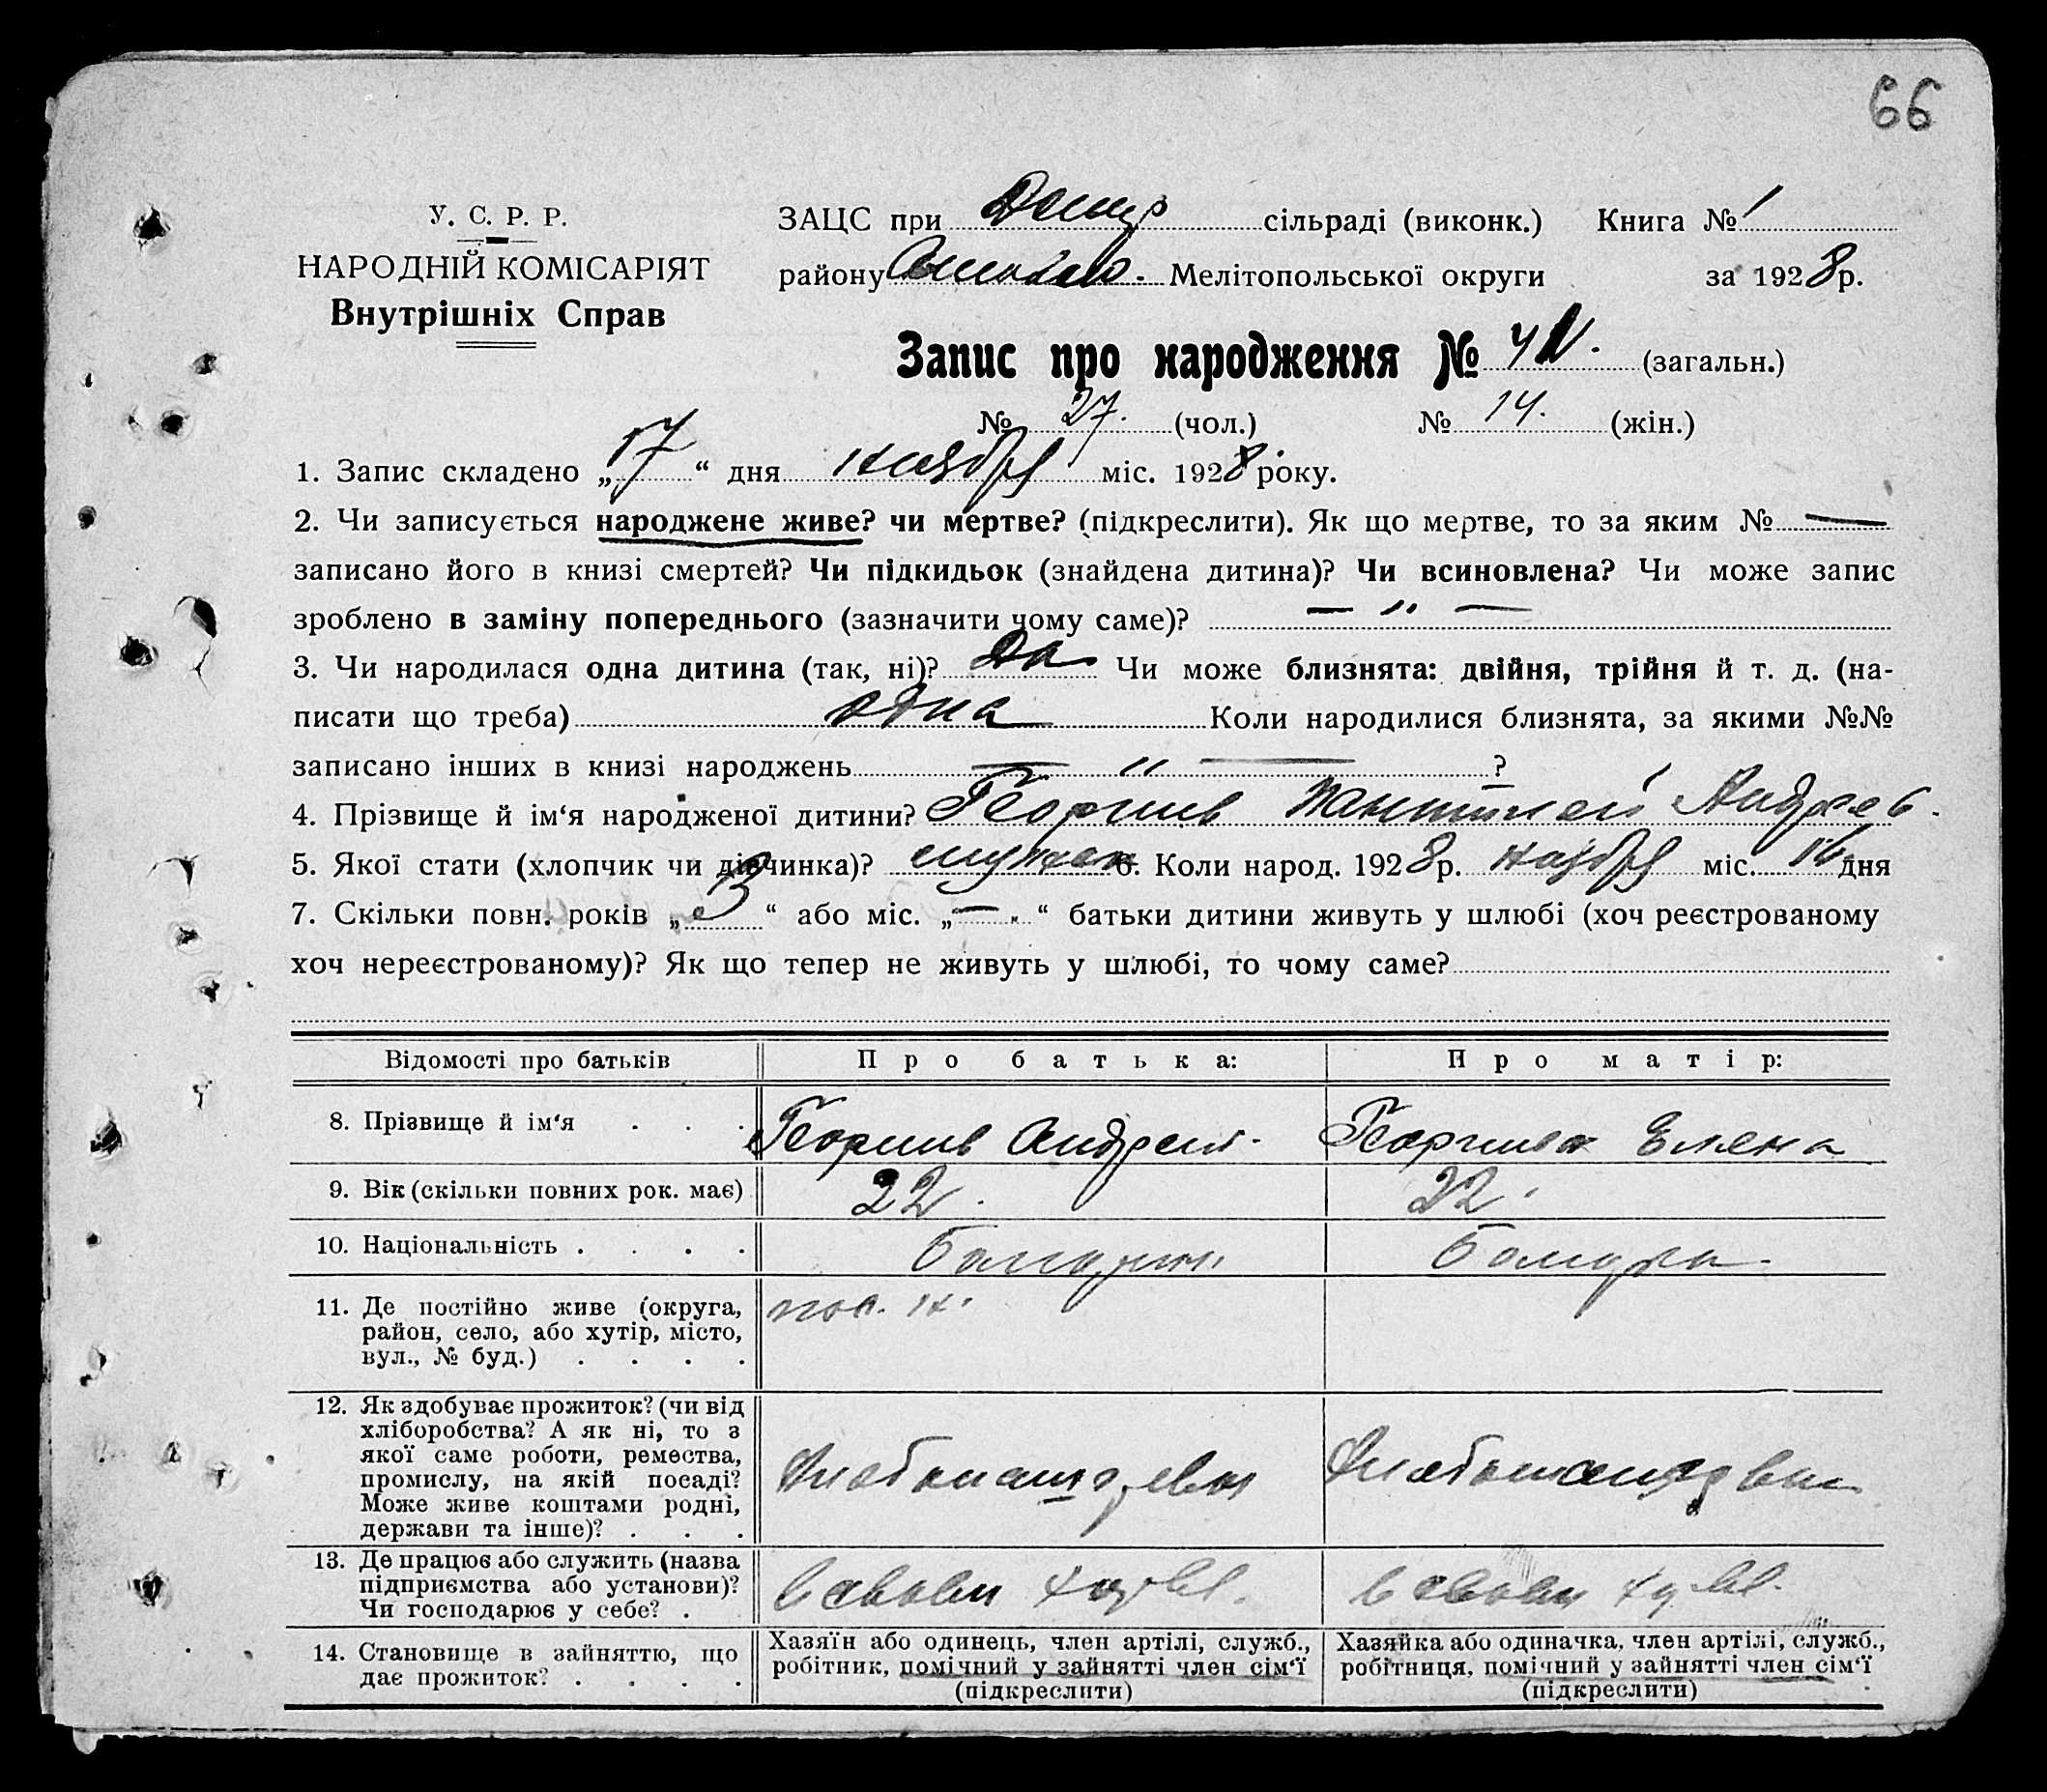 66
У. С. Р. Р.
НАРОДНІЙ КОМІСАРІЯТ
Внутрішніх Справ
ЗАЦС при сільраді (виконк.) Книга № 1
району Мелітопольської округи за 1928 р.
Запис про народження № (загальн.)
№ 27. (чол.) № 14. (жін.)
1. Запис складено „17“ дня ноября міс. 1928 року.
2. Чи записується народжене живе? чи мертве? (підкреслити). Як що мертве, то за яким № —
записано його в книзі смертей? Чи підкидьок (знайдена дитина)? Чи всиновлена? Чи може запис
зроблено в заміну попереднього (зазначити чому саме)? — „ —
3. Чи народилася одна дитина (так, ні)? Да Чи може близнята: двійня, трійня й т. д. (на-
писати що треба) одна Коли народилися близнята, за якими №№
записано інших в книзі народжень — „ — ?
4. Прізвище й ім‘я народженої дитини? Георгиев Пантилей Андреев.
5. Якої стати (хлопчик чи дівчинка)? мужск 6. Коли народ. 1928 р. ноября міс. 16 дня
7. Скільки повн. років „3“ або міс. „—“ батьки дитини живуть у шлюбі (хоч реєстрованому
хоч нереєстрованому)? Як що тепер не живуть у шлюбі, то чому саме?
Відомості про батьків Про батька: Про матір:
8. Прізвище й ім‘я Георгиев Андрей. Георгиева Елена
9. Вік (скільки повних рок. має) 22. 22.
10. Національність Болгарин Болгарка.
11. Де постійно живе (округа,
район, село, або хутір, місто,
вул., № буд.)
12. Як здобуває прожиток? (чи від
хліборобства? А як ні, то з
якої саме роботи, ремества,
промислу, на якій посаді?
Може живе коштами родні,
держави та інше)?
Хлебопашество Хлебопашество
13. Де працює або служить (назва
підприємства або установи)?
Чи господарює у себе?
в своем хоз. в своем хоз.
14. Становище в зайняттю, що
дає прожиток?
Хазяїн або одинець, член артілі, служб.,
робітник, помічний у зайнятті член сім‘ї
(підкреслити)
Хазяйка або одиначка, член артілі, служб.,
робітниця, помічний у зайнятті член сім‘ї
(підкреслити)